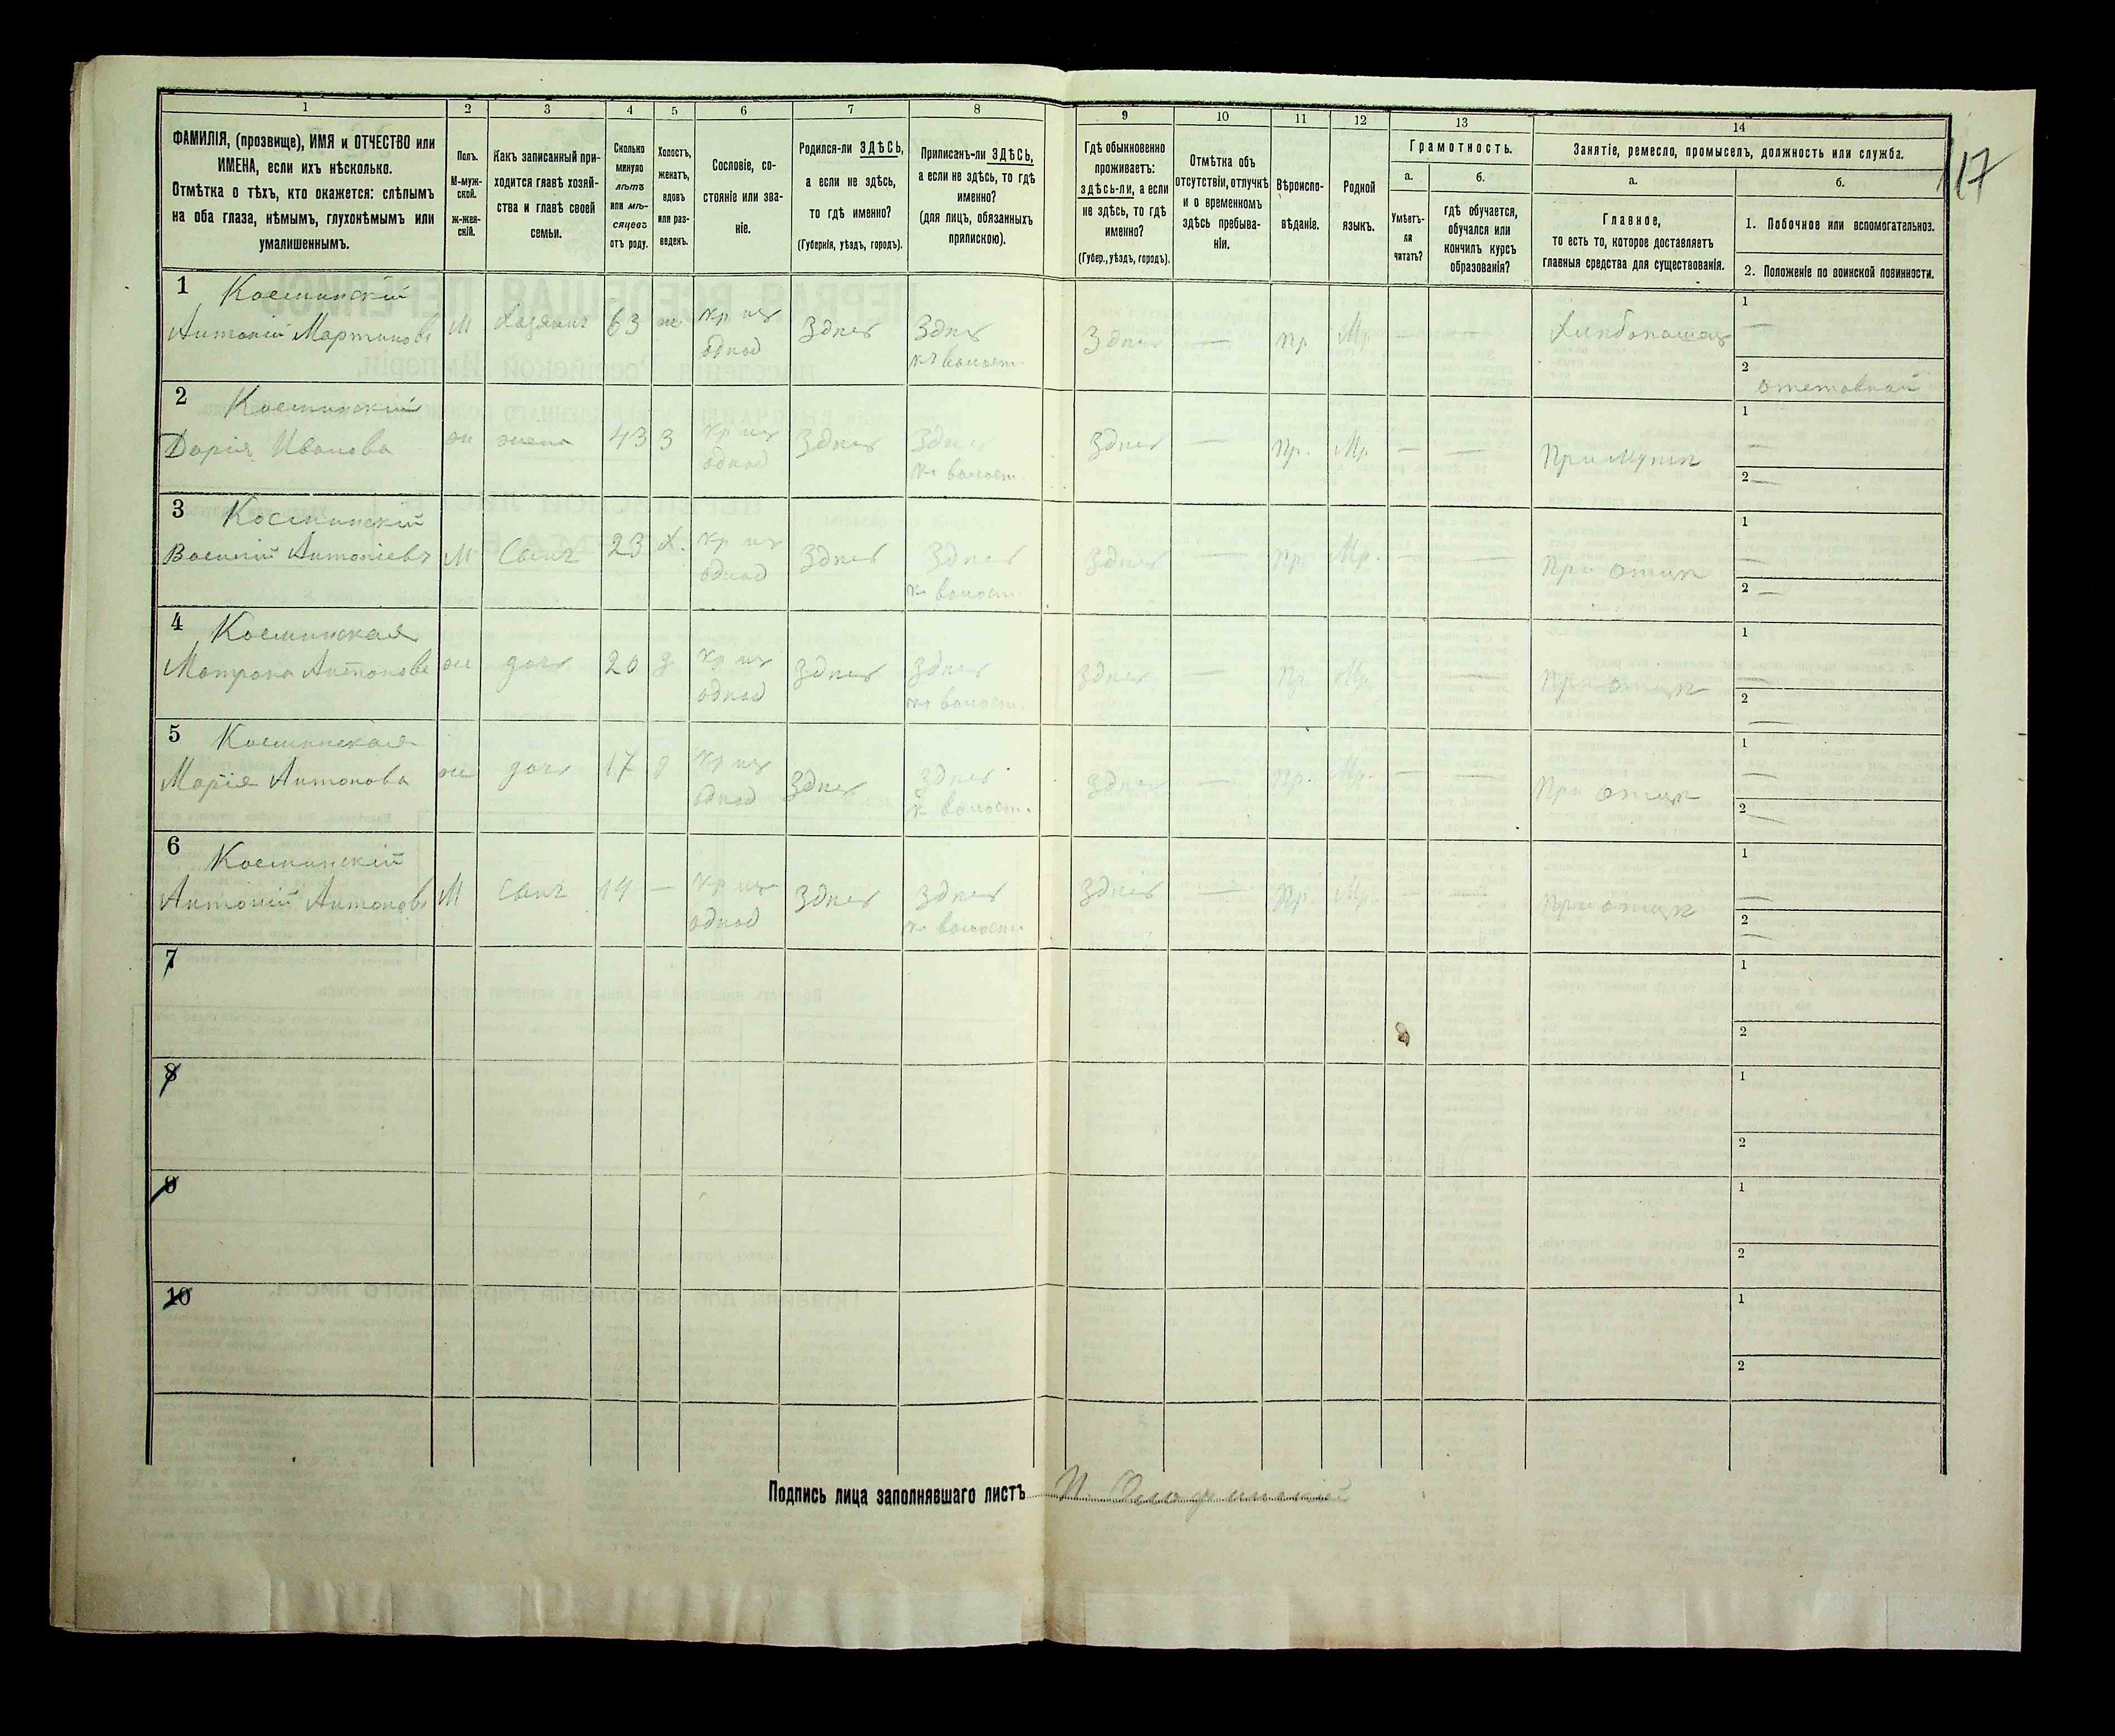 17
1 2 3 4 5 6 7 8 9 10 11 12 13 14
ФАМИЛІЯ, (прозвище), ИМЯ и ОТЧЕСТВО или
ИМЕНА, если ихъ нѣсколько.
Отмѣтка о тѣхъ, кто окажется: слѣпымъ
на оба глаза, нѣмымъ, глухонѣмымъ или
умалишеннымъ.
Полъ.
М-муж-
ской.
ж-жен-
скій.
Какъ записанный при-
ходится главѣ хозяй-
ства и главѣ своей
семьи.
Сколько
минуло
лѣтъ
или мѣ-
сяцевъ
отъ роду.
Холостъ,
женатъ,
вдовъ
или раз-
веденъ.
Сословіе, со-
стояніе или зва-
ніе.
Родился-ли ЗДѢСЬ,
а если не здѣсь,
то гдѣ именно?
(Губернія, уѣздъ, городъ).
Приписанъ-ли ЗДѢСЬ,
а если не здѣсь, то гдѣ
именно?
(для лицъ, обязанныхъ
припискою).
Гдѣ обыкновенно
проживаетъ:
здѣсь-ли, а если
не здѣсь, то гдѣ
именно?
(Губер., уѣздъ, городъ).
Отмѣтка объ
отсутствіи, отлучкѣ
и о временномъ
здѣсь пребыва-
ніи.
Вѣроиспо-
вѣданіе.
Родной
языкъ.
Грамотность.
а.
Умѣетъ-
ли
читать?
б.
гдѣ обучается,
обучался или
кончилъ курсъ
образованія?
Занятіе, ремесло, промыселъ, должность или служба.
а.
Главное,
то есть то, которое доставляетъ
главныя средства для существованія.
б.
1. Побочное или вспомогательное.
2. Положеніе по воинской повинности.
1 Косминскій
Антоній Мартиновъ М Хозяинъ 63 ж кр изъ Здѣсь Здѣсь Здѣсь — пр. Мр. — — Хлѣбопашецъ 1 —
однод къ волост. 2 отставной
2 Косминский
Дарія Иванова ж жена 43 З кр изъ Здѣсь Здѣсь Здѣсь — пр. Мр. — — При мужѣ 1 —
однод къ волост. 2 —
3 Косминскій
Василій Антоніевъ М Сынъ 23 Х. кр изъ Здѣсь Здѣсь Здѣсь — пр. Мр. — — При отцѣ 1 —
однод къ волост. 2 —
4 Косминская
Матрона Антонова ж дочь 20 д кр изъ Здѣсь Здѣсь Здѣсь — пр. Мр. — — При отцѣ 1 —
однод къ волост. 2 —
5 Косминская
Марія Антонова ж дочь 17 д кр изъ Здѣсь Здѣсь Здѣсь — пр. Мр. — — При отцѣ 1 —
однод къ волост. 2 —
6 Косминскій
Антоній Антоновъ М Сынъ 14 — кр изъ Здѣсь Здѣсь Здѣсь — пр. Мр. — — При отцѣ 1 —
однод къ волост. 2 —
7 1
2
8 1
2
9 1
2
10 1
2
Подпись лица заполнявшаго листъ